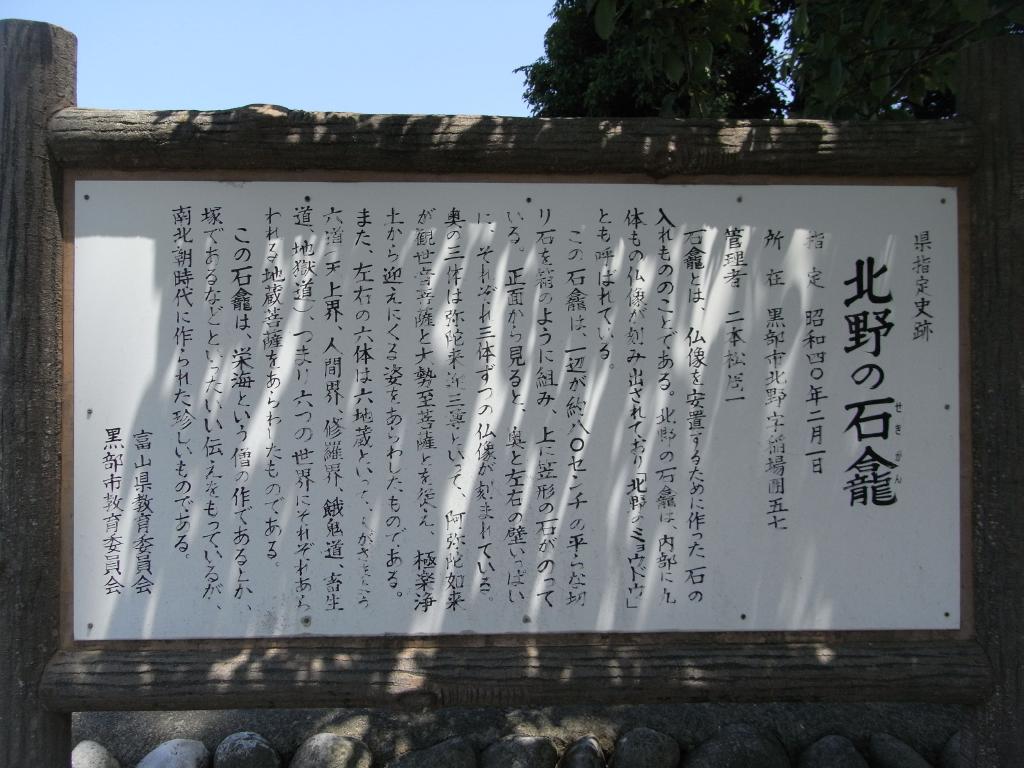 県指定史跡
北野の石龕
せきがん
指定 昭和四〇年二月一日
所在 黒部市北野字稲場圃五七
管理者 二本松
石龕とは、仏像を安置するために作った石の
入れもののことである。北野の石龕は、内部に九
体もの仏像が刻み出されており「北野のミョウドウ」
とも呼ばれている。
この石龕は、一辺が約八〇センチの平らな切
り石を箱のように組み、上に笠形の石がのって
いる。正面から見ると、奥と左右の壁いっぱい
に、それぞれ三体ずつの仏像が刻まれている。
奥の三体は弥陀来迎三尊といって、阿弥陀如来
が観世音菩薩と大勢至菩薩とを従え、極楽浄
土から迎えにくる姿をあらわしたものである。
また、左右の六体は六地蔵といって、
六道（天上界、人間界、修羅界、餓鬼道、畜生
道、地獄道）、つまり六つの世界にそれぞれあら
われる地蔵菩薩をあらわしたものである。
この石龕は、栄海という僧の作であるとか、
塚であるなどといったいい伝えをもっているが、
南北朝時代に作られた珍しいものである。
富山県教育委員会
黒部市教育委員会